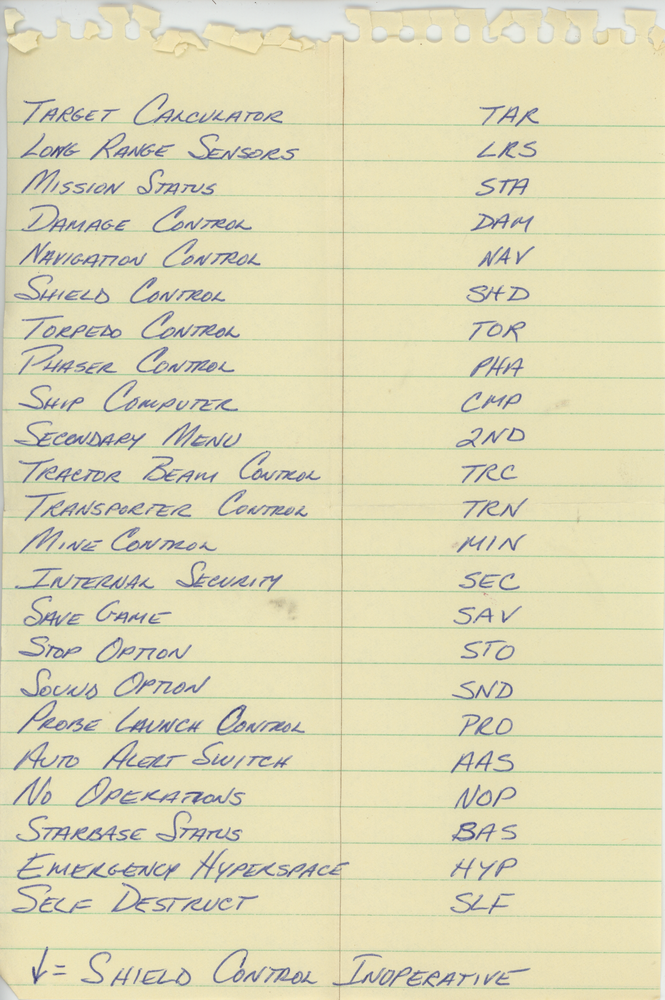 TARGET CALCULATOR TAR
LONG RANGE SENSORS LRS
MISSION STATUS STA
DAMAGE CONTROL DAM
NAVIGATION CONTROL NAV
SHIELD CONTROL SHD
TORPEDO CONTROL TOR
PHASER CONTROL PHA
SHIP COMPUTER CMP
SECONDARY MENU 2ND
TRACTOR BEAM CONTROL TRC
TRANSPORTER CONTROL TRN
MINE CONTROL MIN
INTERNAL SECURITY SEC
SAVE GAME SAV
STOP OPTION STO
SOUND OPTION SND
PROBE LAUNCH CONTROL PRO
AUTO ALERT SWITCH AAS
NO OPERATIONS NOP
STARBASE STATUS BAS
EMERGENCY HYPERSPACE HYP
SELF DESTRUCT SLF
↓= SHIELD CONTROL INOPERATIVE